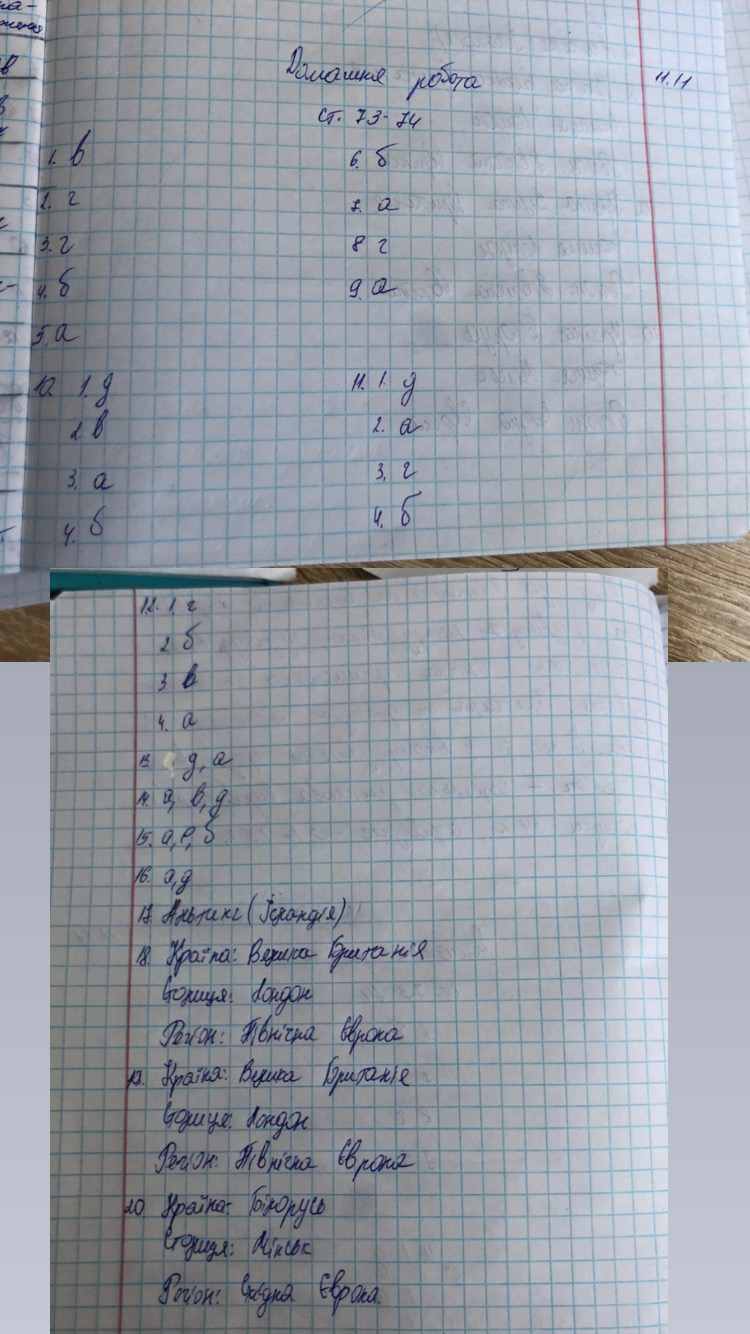 Домашня робота 11.11
ст. 73-74
1. в
2. г
3. г
4. б
5. а
6. б
7. а
8 г
9. а
10. 1. д
2. в
3. а
4. б
11. 1. д
2. а
3. г
4. б
12. 1. г
2 б
3 в
4. а
13. д, а
14. а, в, д.
15. а, е, б
16. а, д
17. Альтинг (Ісландія)
18. Країна: Велика Британія
Столиця: Лондон
Регіон: Північна Європа
19. Країна: Велика Британіє
Столиця: Лондон
Регіон: Північна Європа
20. Країна: Білорусь
Столиця: Мінськ
Регіон: Східна Європа.